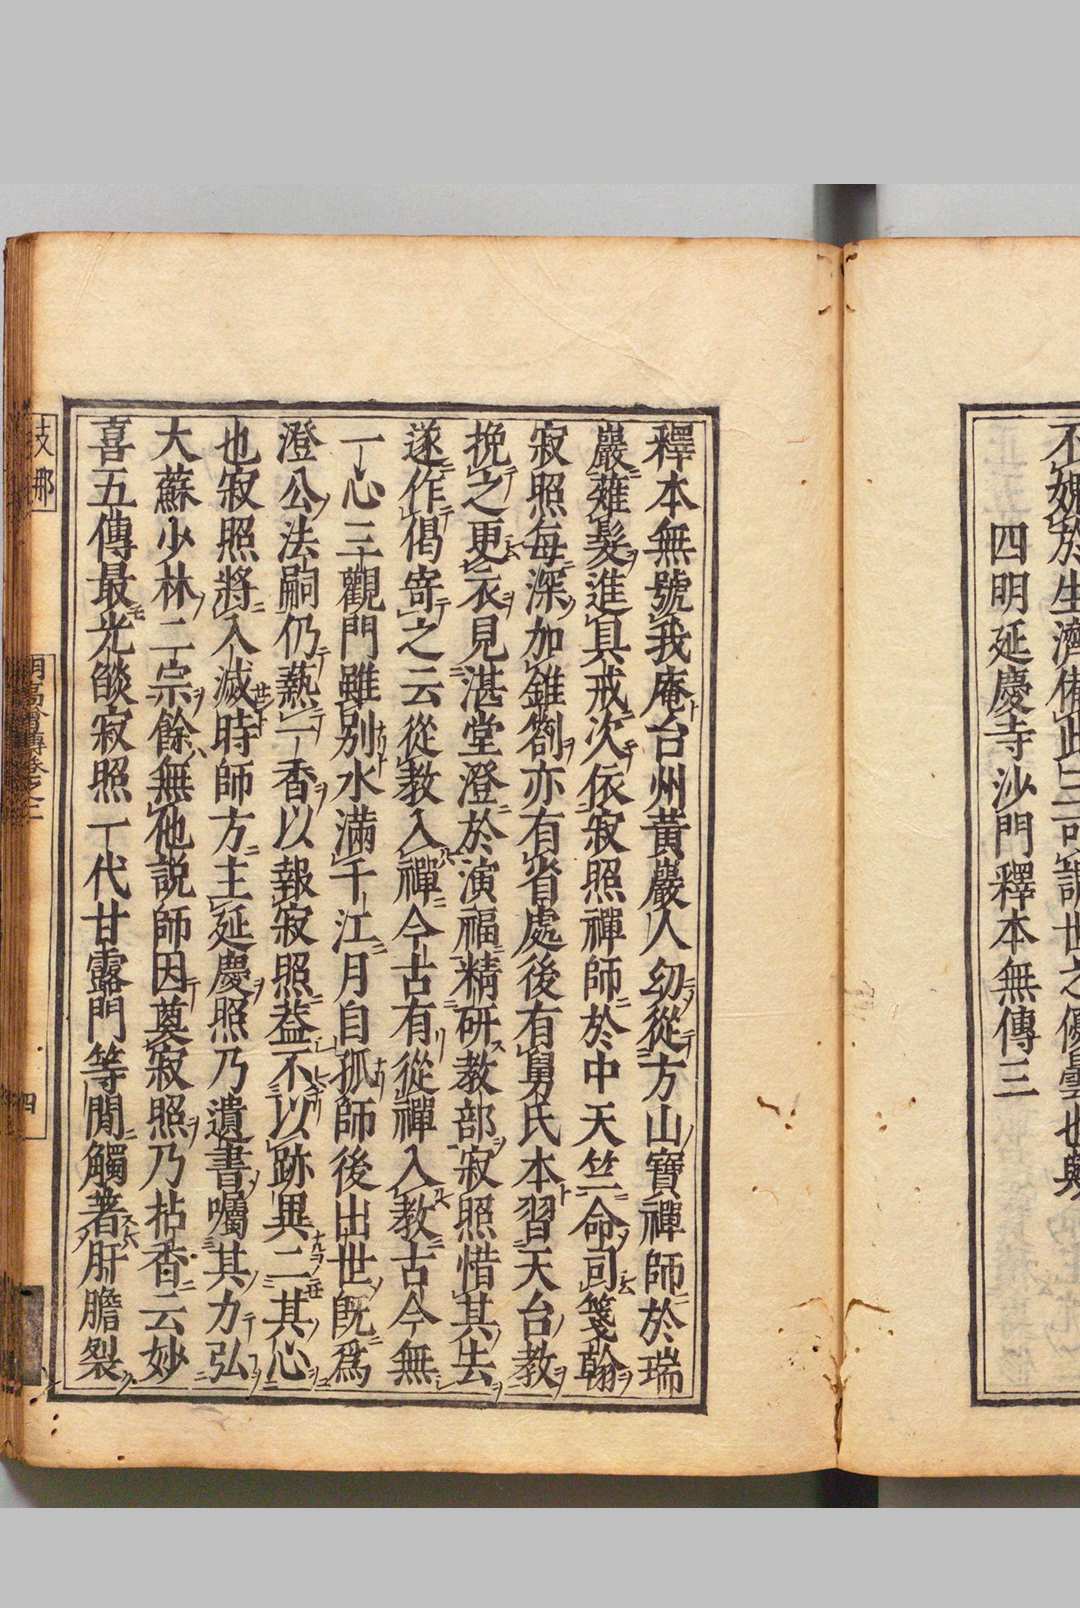 四明延慶寺沙門釋本無傳三
釋本無號我庵台州黃巖人幼從方山寶禪師於瑞
巖薙髮進具戒次依寂照禪師於中天竺命司箋翰
寂照每深加錐劄亦有省處後有舅氏本習天台教
挽之更衣見湛堂澄於演福精研教部寂照惜其去
遂作偈寄之云從教入禪今古有從禪入教古今無
一心三觀門雖別水滿千江月自孤師後出世既爲
澄公法嗣仍爇一香以報寂照益不以跡異二其心
也寂照將入滅時師方主延慶照乃遺書囑其力弘
大蘇少林二宗餘無他說師因奠寂照乃拈香云妙
喜五傳最光燄寂照一代甘露門等閒觸著肝膽裂
支那
明高僧傳卷之二
四